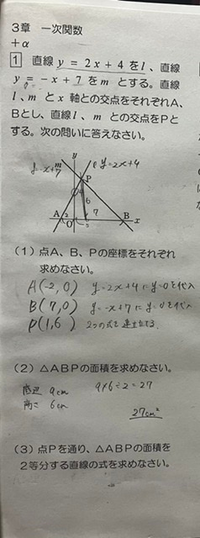 3章 一次関数
+α
1 直線 y = 2x + 4 を l 、直線
y = -x + 7 を m とする。直線
l 、m と x 軸との交点をそれぞれA、
Bとし、直線 l 、m との交点をPと
する。次の問いに答えなさい。
y=-x+7 m y l y=2x+4
P
6
7
A O B x
(1) 点A、B、Pの座標をそれぞれ
求めなさい。
A(-2, 0) y=2x+4に y=0を代入
B(7, 0) y=-x+7に y=0を代入
P(1, 6) 2つの式を連立させる
(2) △ABPの面積を求めなさい。
底辺 9cm 9×6÷2=27
高さ 6cm
27cm²
(3) 点Pを通り、△ABPの面積を
2等分する直線の式を求めなさい。